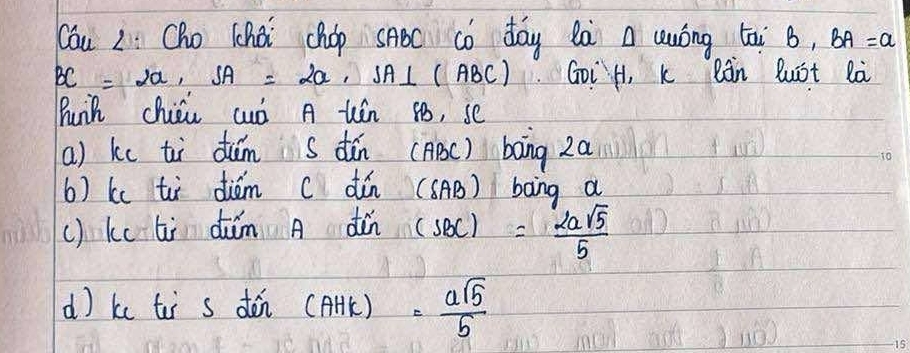 Câu 2: Cho khối chóp SABC có đáy là Δ vuông tại B, BA = a
BC = 2a, SA = 2a, SA ⊥ (ABC). Gọi H, K lần lượt là
hình chiếu của A trên SB, SC
a) kc từ điểm S đến (ABC) bằng 2a
b) kc từ điểm C đến (SAB) bằng a
c) kc từ điểm A đến (SBC) = 2a√5/5
d) kc từ S đến (AHK) = a√5/5
10
15